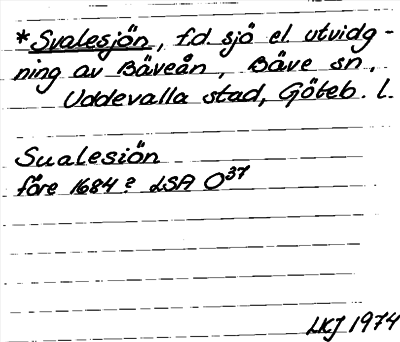 *Svalesjön, f.d. sjö el. utvidg-
ning av Bäveån, Bäve sn,
Uddevalla stad, Göteb. l.
Sualesiön
före 1684? LSA O37
LKJ 1974